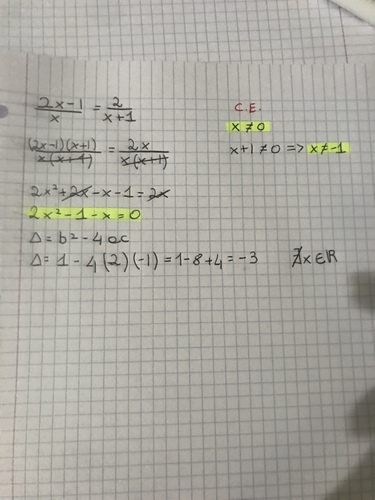 (2x-1)/x = 2/(x+1)
C.E.
x ≠ 0
x+1 ≠ 0 => x ≠ -1
(2x-1)(x+1)/x(x+1) = 2x/x(x+1)
2x²+2x-x-1=2x
2x²-1-x=0
Δ = b²-4ac
Δ = 1-4(2)(-1)=1-8+4=-3 ∄x∈ℝ